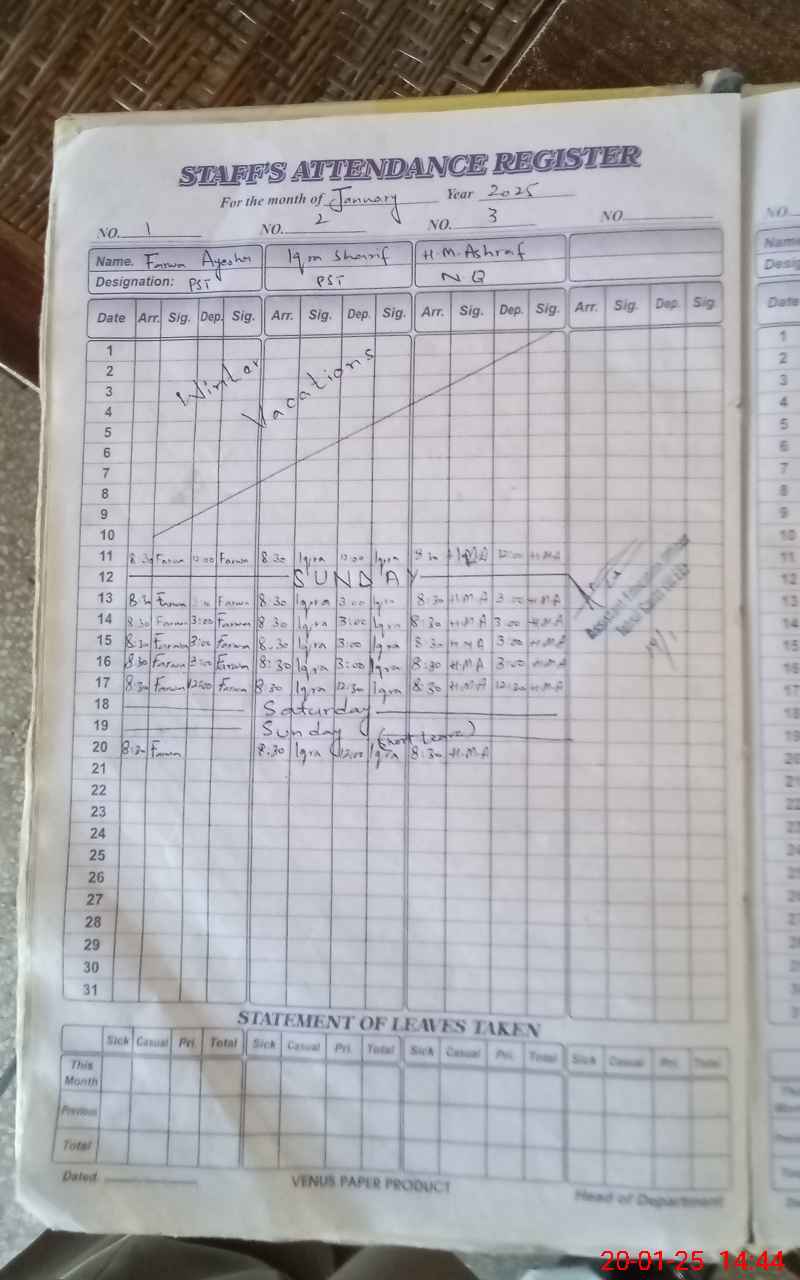 STAFF'S ATTENDANCE REGISTER
For the month of January Year 2025
NO. 1 NO. 2 NO. 3 NO.
Name. Farwa Ayesha Iqra Sharif H.M.Ashraf
Designation: PST PST N.Q
Date Arr. Sig. Dep. Sig. Arr. Sig. Dep. Sig. Arr. Sig. Dep. Sig. Arr. Sig. Dep. Sig.
1
2 Winter
3 Vacations
4
5
6
7
8
9
10
11 8:30 Farwa 12:00 Farwa 8:30 Iqra 12:00 Iqra 8:30 H.M.A 12:00 H.M.A
12 SUNDAY
13 8:30 Farwa 3:00 Farwa 8:30 Iqra 3:00 Iqra 8:30 H.M.A 3:00 H.M.A
14 8:30 Farwa 3:00 Farwa 8:30 Iqra 3:00 Iqra 8:30 H.M.A 3:00 H.M.A
15 8:30 Farwa 3:00 Farwa 8:30 Iqra 3:00 Iqra 8:30 H.M.A 3:00 H.M.A
16 8:30 Farwa 3:00 Farwa 8:30 Iqra 3:00 Iqra 8:30 H.M.A 3:00 H.M.A
17 8:30 Farwa 12:00 Farwa 8:30 Iqra 12:30 Iqra 8:30 H.M.A 12:30 H.M.A
18 Saturday
19 Sunday (short leave)
20 8:30 Farwa 8:30 Iqra 12:00 Iqra 8:30 H.M.A
21
22
23
24
25
26
27
28
29
30
31
Assistant Education Officer
STATEMENT OF LEAVES TAKEN
Sick Casual Pri. Total Sick Casual Pri. Total Sick Casual Pri. Total Sick Casual Pri. Total
This
Month
Previous
Total
Dated
VENUS PAPER PRODUCT
Head of Department
20-01-25 14:44